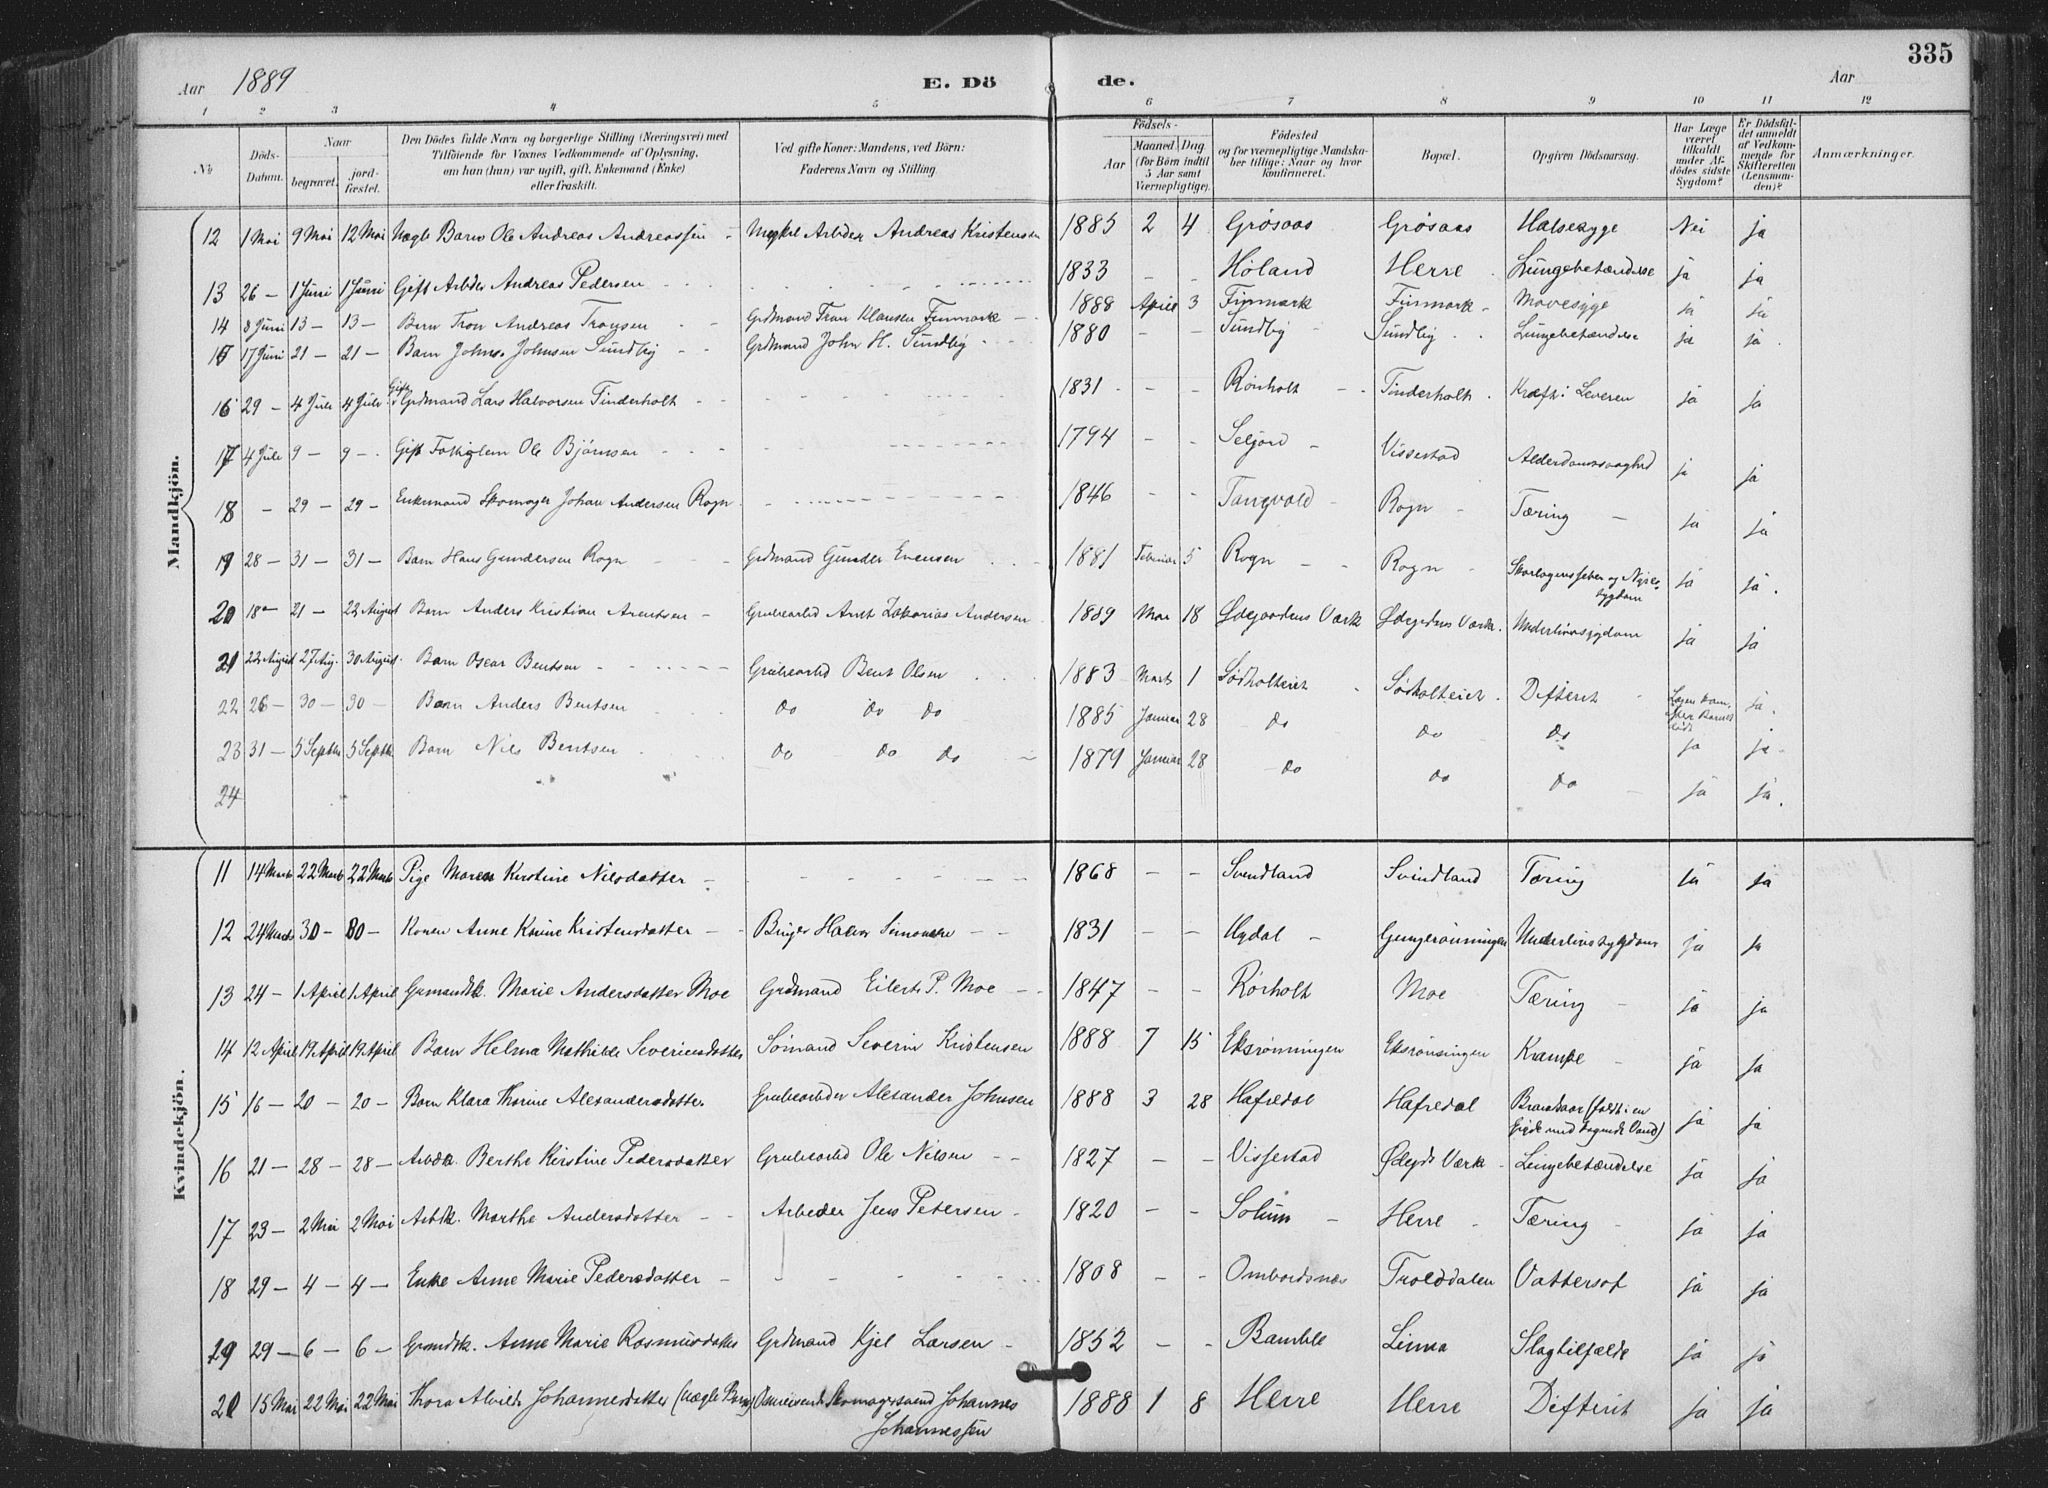 335
Aar 1889 E. Dö de. Aar
1 2 3 4 5 6 7 8 9 10 11 12
No
Döds-Datum.
Naar
begravet.
jord-fæstet.
Den Dödes fulde Navn og borgerlige Stilling (Næringsvei) med
Tilföiende for Voxnes Vedkommende af Oplysning,
om han (hun) var ugift, gift, Enkemand (Enke)
eller fraskilt.
Ved gifte Koner: Mandens, ved Börn:
Faderens Navn og Stilling.
Födsels-
Aar
Maaned Dag
(for Börn indtil
5 Aar samt
Værnepligtige).
Födested
og for værnepligtige Mandska-
ber tillige: Naar og hvor
konfirmeret.
Bopæl.
Opgiven Dödsaarsag.
Har Læge
været
tilkaldt
under Af-
dödes sidste
Sygdom?
Er Dödsfal-
det anmeldt
af Vedkom-
mende for
Skifteretten
(Lensman-
den)?
Anmærkninger.
Mandkjön.
12 1 Mai 9 Mai 12 Mai Uægte Barn Ole Andreas Andreassen - Arbeider Andreas Kristensen 1885 2 4 Grøsaas Grøsaas Halsesyge Nei ja
13 26 - 1 Juni 1 Juni Gift Arbder Andreas Pedersen 1833 - - Høland Herre Lungebetændelse ja ja
14 8 Juni 13 - 13 - Barn Tron Andreas Tronsen Grdmand Tron Klausen Finmark 1888 April 3 Finmark Finmark Mavesyge ja ja
15 17 Juni 21 - 21 - Barn Johns. Johnsen Sundby Grdmand John H. Sundby 1880 Sundby Sundby Lungebetændelse ja ja
16 29 - 4 Juli 4 Juli Gift Grdmand Lars Halvorsen Tinderholt 1831 - - Rørholt Tinderholt Kræft i Leveren ja ja
17 4 Juli 9 - 9 - Gift Ole Bjørnsen 1794 - - Seljord Vissestad Alderdomssvaghed ja ja
18 - 29 - 29 - Enkemand Skomager Johan Andersen Rogn 1846 - - Tangvald Rogn Tæring ja ja
19 28 - 31 - 31 - Barn Hans Gundersen Rogn Grdmand Gunder Evensen 1881 Februar 5 Rogn Rogn Skarlagensfeber og Nyre-
sygdom ja ja
20 18 - 21 - 22 August Barn Anders Kristian Arentsen Grubearbd Arnt Zakarias Andersen 1889 Mai 18 Ødegaardens Værk Ødegdens Værk Underlivssygdom ja ja
21 22 August 27 Aug. 30 August Barn Oscar Bentsen Grubearbd Bent Olsen 1883 Marts 1 Sødholteiet Sødholteiet Difterit ja
22 26 - 30 - 30 - Barn Anders Bentsen do do do 1885 Januar 28 do do do ja ja
23 31 - 5 Septbr 5 Septbr Barn Nils Bentsen do do do 1879 Januar 28 do do do ja ja
24
Kvindekjön.
11 14 Marts 22 Marts 22 Marts Pige Maren Kirstine Nilsdatter 1868 - - Svindland Svindland Tæring ja ja
12 24 Marts 30 - 30 - Konen Anne Karine Kristensdatter Halvor Simonsen 1831 - - Uydal Underlivssygdom ja ja
13 24 - 1 April 1 April Grmandsk. Marie Andersdatter Moe Grdmand Eilert P. Moe 1847 - - Rørholt Moe Tæring ja ja
14 12 April 19 April 19 April Barn Helma Mathilde Severinsdatter Sømand Severin Kristensen 1888 7 15 Eksrønningen Eksrønningen Krampe ja ja
15 16 - 20 - 20 - Barn Klara Thorine Alexandersdatter Grubearbder Alexander Johnsen 1888 3 28 Hafredal Hafredal Brandsaar (faldt i en
Gryde med kogende Vand) ja ja
16 21 - 28 - 28 - Arbdk. Berthe Kirstine Pedersdatter Grubearbd Ole Nilsen 1827 - - Vissestad Ødegds Værk Lungebetændelse ja ja
17 23 - 2 Mai 2 Mai Arbdk. Marthe Andersdatter Arbeider Jens Petersen 1820 - - Solum Herre Tæring ja ja
18 29 - 4 - 4 - Enke Anne Marie Pedersdatter 1808 - - Ombordsnes Trolddalen Vattersot ja ja
29 29 - 6 - 6 - Grmdsk. Anne Marie Rasmusdatter Grdmand Kjel Larsen 1852 - - Bamble Linna Slagtilfælde ja ja
20 15 Mai 22 Mai 22 Mai Thora Alvilde Johannesdatter (uægte Barn) Skomagersvend Johannes
Johannessen 1888 1 8 Herre Herre Difterit ja ja